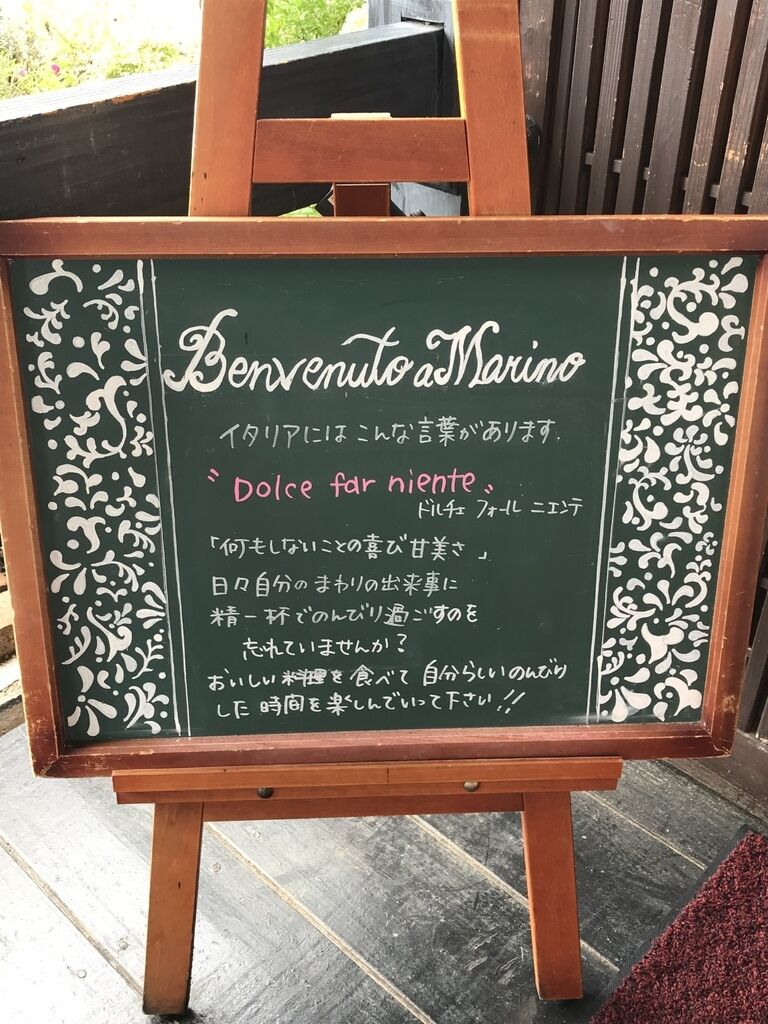 Benvenuto a Marino
イタリアには こんな言葉があります.
〝Dolce far niente〟
ドルチェ フォール ニエンテ
「何もしないことの喜び甘美さ」
日々自分のまわりの出来事に
精一杯でのんびり過ごすのを
忘れていませんか?
おいしい料理を食べて 自分らしいのんびり
した時間を楽しんでいって下さい!!